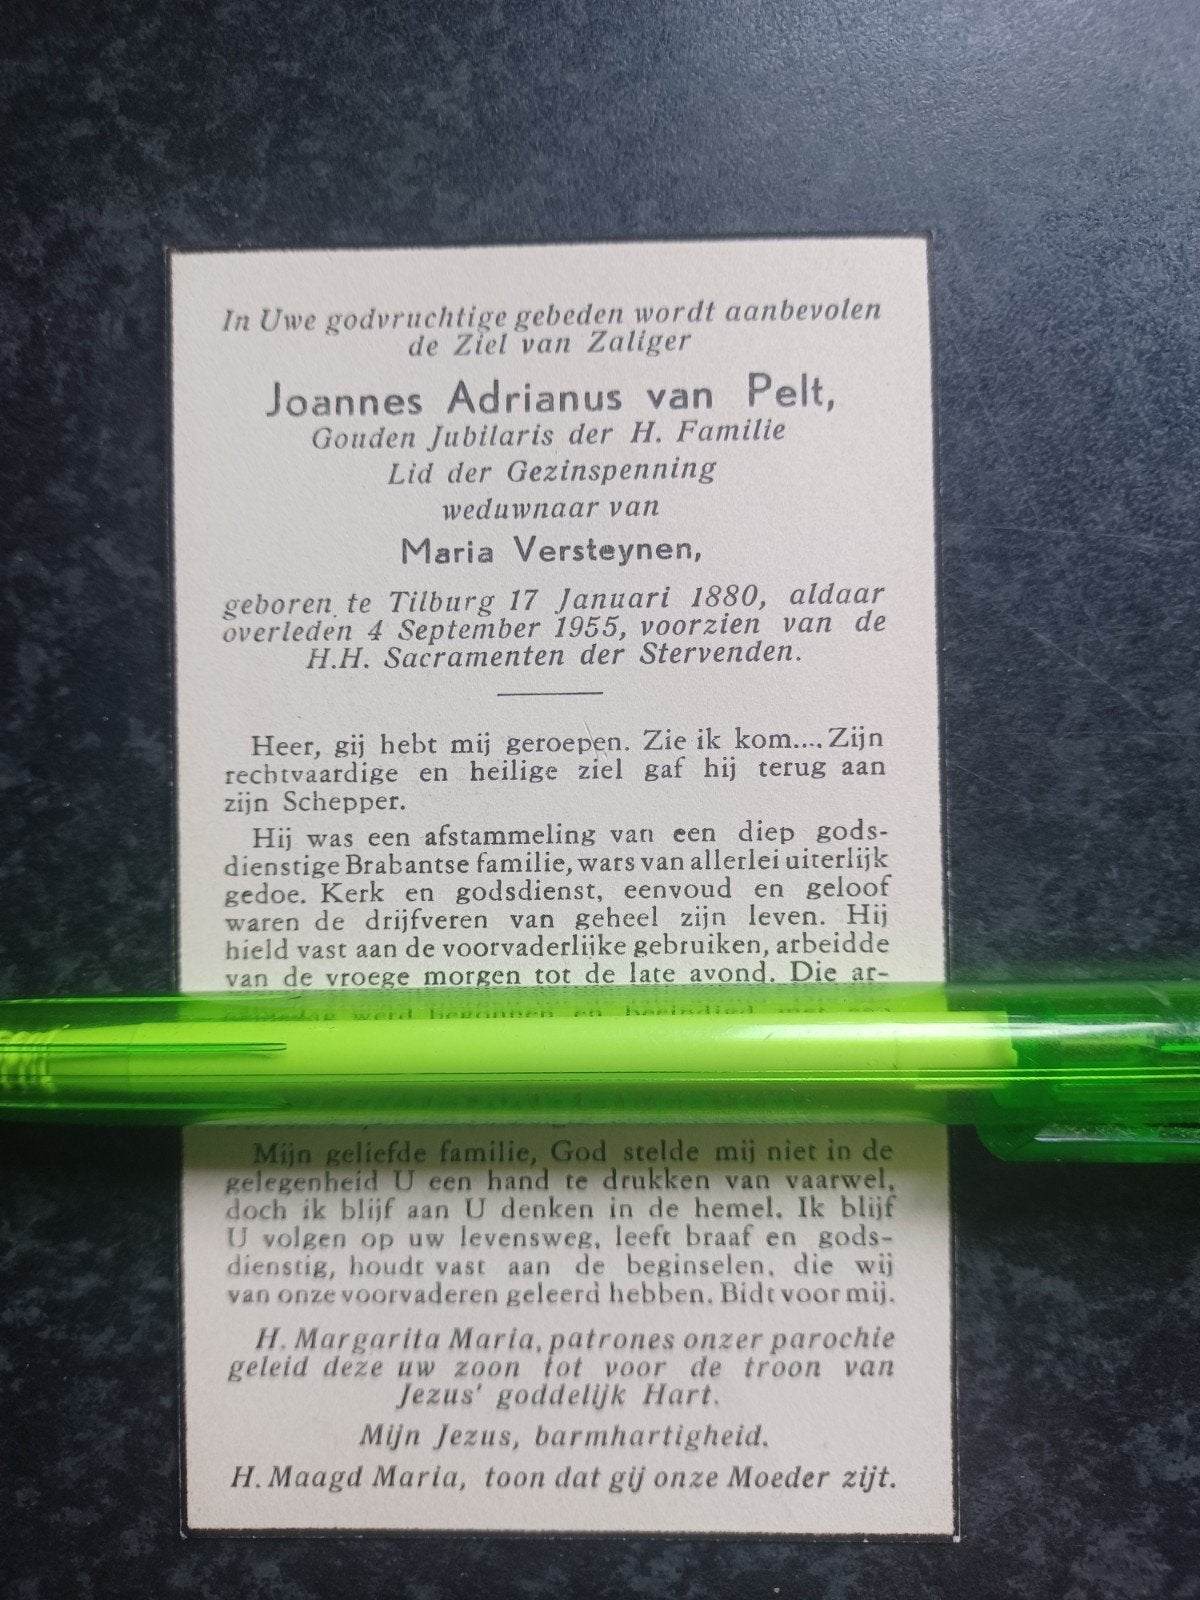 In Uwe godvruchtige gebeden wordt aanbevolen
de Ziel van Zaliger
Joannes Adrianus van Pelt,
Gouden Jubilaris der H. Familie
Lid der Gezinspenning
weduwnaar van
Maria Versteynen,
geboren te Tilburg 17 Januari 1880, aldaar
overleden 4 September 1955, voorzien van de
H.H. Sacramenten der Stervenden.
Heer, gij hebt mij geroepen. Zie ik kom.... Zijn
rechtvaardige en heilige ziel gaf hij terug aan
zijn Schepper.
Hij was een afstammeling van een diep gods-
dienstige Brabantse familie, wars van allerlei uiterlijk
gedoe. Kerk en godsdienst, eenvoud en geloof
waren de drijfveren van geheel zijn leven. Hij
hield vast aan de voorvaderlijke gebruiken, arbeidde
van de vroege morgen tot de late avond. Die ar-
werd begonnen en beeindigd met een
Mijn geliefde familie, God stelde mij niet in de
gelegenheid U een hand te drukken van vaarwel,
doch ik blijf aan U denken in de hemel. Ik blijf
U volgen op uw levensweg, leeft braaf en gods-
dienstig, houdt vast aan de beginselen, die wij
van onze voorvaderen geleerd hebben. Bidt voor mij.
H. Margarita Maria, patrones onzer parochie
geleid deze uw zoon tot voor de troon van
Jezus' goddelijk Hart.
Mijn Jezus, barmhartigheid.
H. Maagd Maria, toon dat gij onze Moeder zijt.